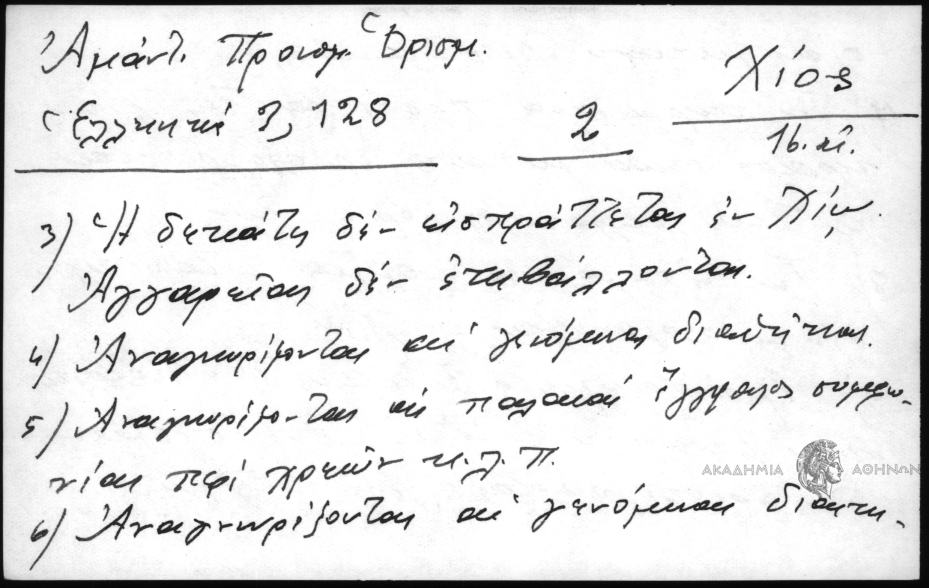 Ἀμάντ. Προνομ. Ὁρισμ.
Ἑλληνικά 3, 128
2
Χίος
16. αἰ.
3) Ἡ δεκάτη δέν εἰσπράττεται ἐν Χίῳ.
Ἀγγαρεῖαι δέν ἐπιβάλλονται.
4) Ἀναγνωρίζονται αἱ γενόμεναι
5) Ἀναγνωρίζονται αἱ παλαιαί ἔγγραφοι συμφω-
νίαι περί χρεῶν κ.λ.π.
6) Ἀναγνωρίζονται αἱ γενόμεναι
ΑΚΑΔΗΜΙΑ ΑΘΗΝΩΝ